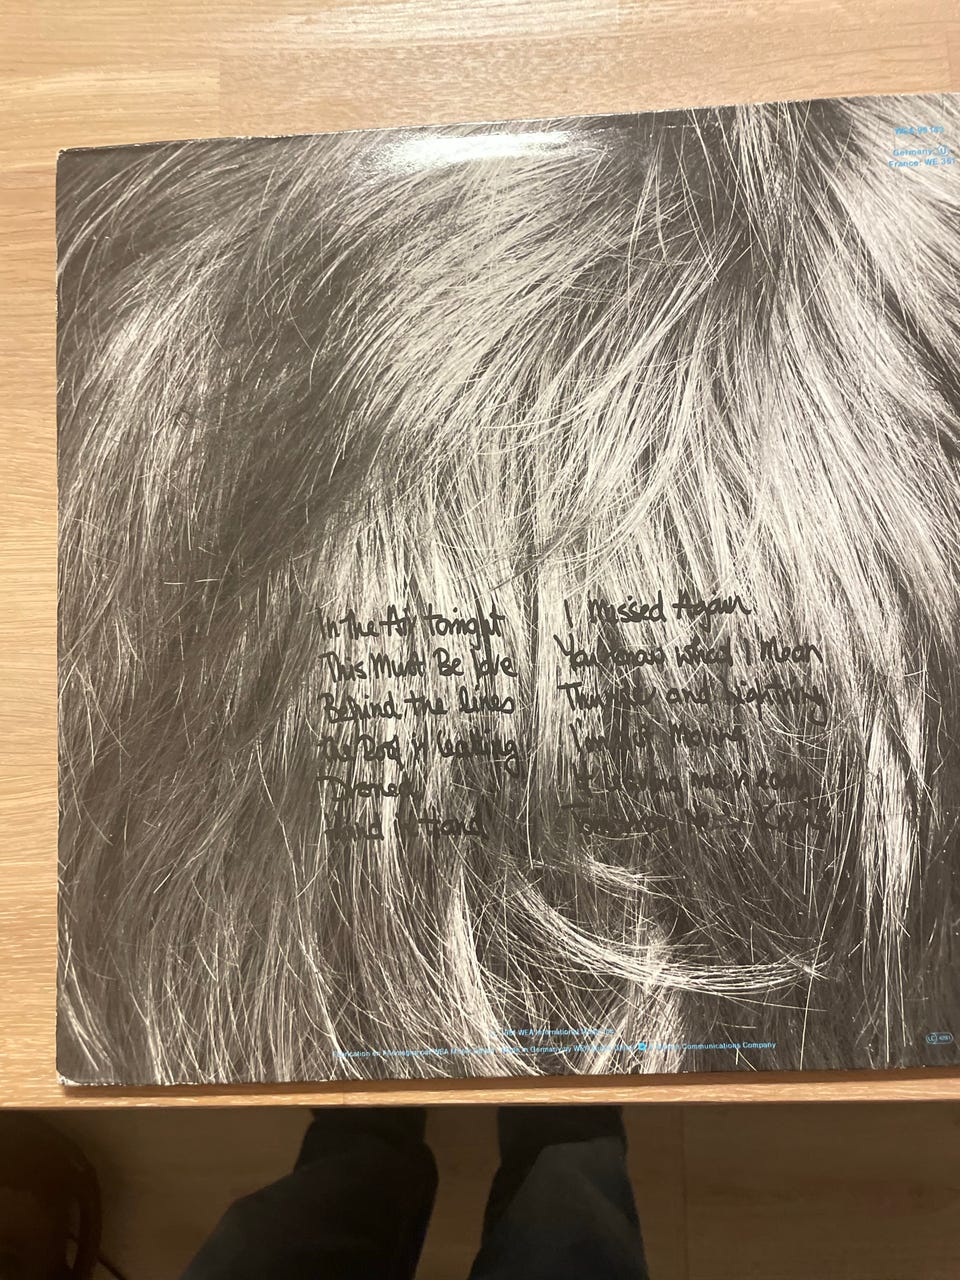 In The Air Tonight
This Must Be Love
Behind the lines
The Roof is leaking
Droned
Hand in Hand
I Missed Again
You know what I Mean
Thunder and Lightning
I'm Not Moving
If leaving me is easy
Tomorrow Never Knows
WEA 99 169
Germany: U
France: WE 351
WEA International
Made in Germany by WEA
Communications Company
LC 4281